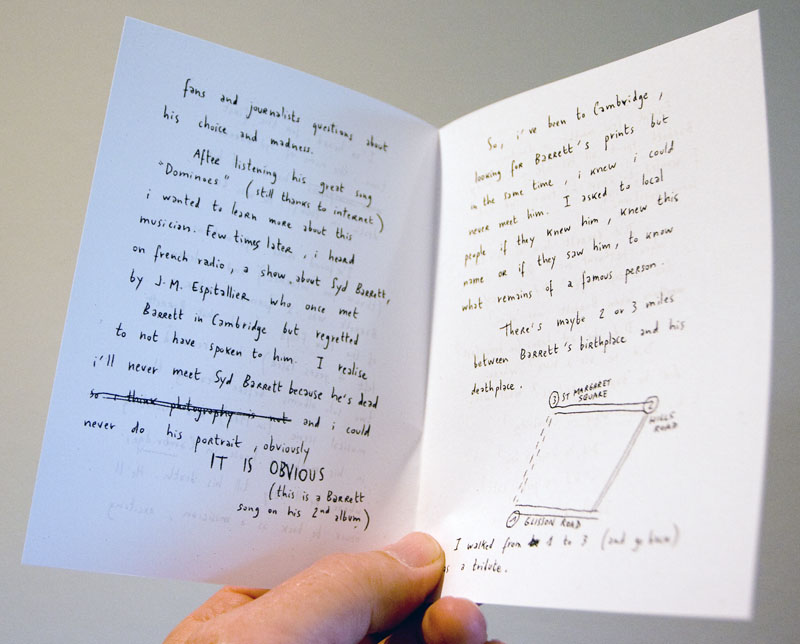 fans and journalists questions about
his choice and madness.
After listening his great song
"Dominoes" (still thanks to internet)
i wanted to learn more about this
musician. Few times later, i heard
on french radio, a show about Syd Barrett,
by J.M. Espitallier who once met
Barrett in Cambridge but regretted
to not have spoken to him. I realise
i'll never meet Syd Barrett because he's dead
so i think photography is not and i could
never do his portrait, obviously
IT IS OBVIOUS
(this is a Barrett
song on his 2nd album)
So, i've been to Cambridge,
looking for Barrett's prints but
in the same time, i knew i could
never meet him. I asked to local
people if they knew him, knew this
name or if they saw him, to know
what remains of a famous person.
There's maybe 2 or 3 miles
between Barrett's birthplace and his
deathplace.
3 ST MARGARET
SQUARE
2
HILLS
ROAD
1 GLISSON ROAD
I walked from 1 to 3 (and go back)
as a tribute.